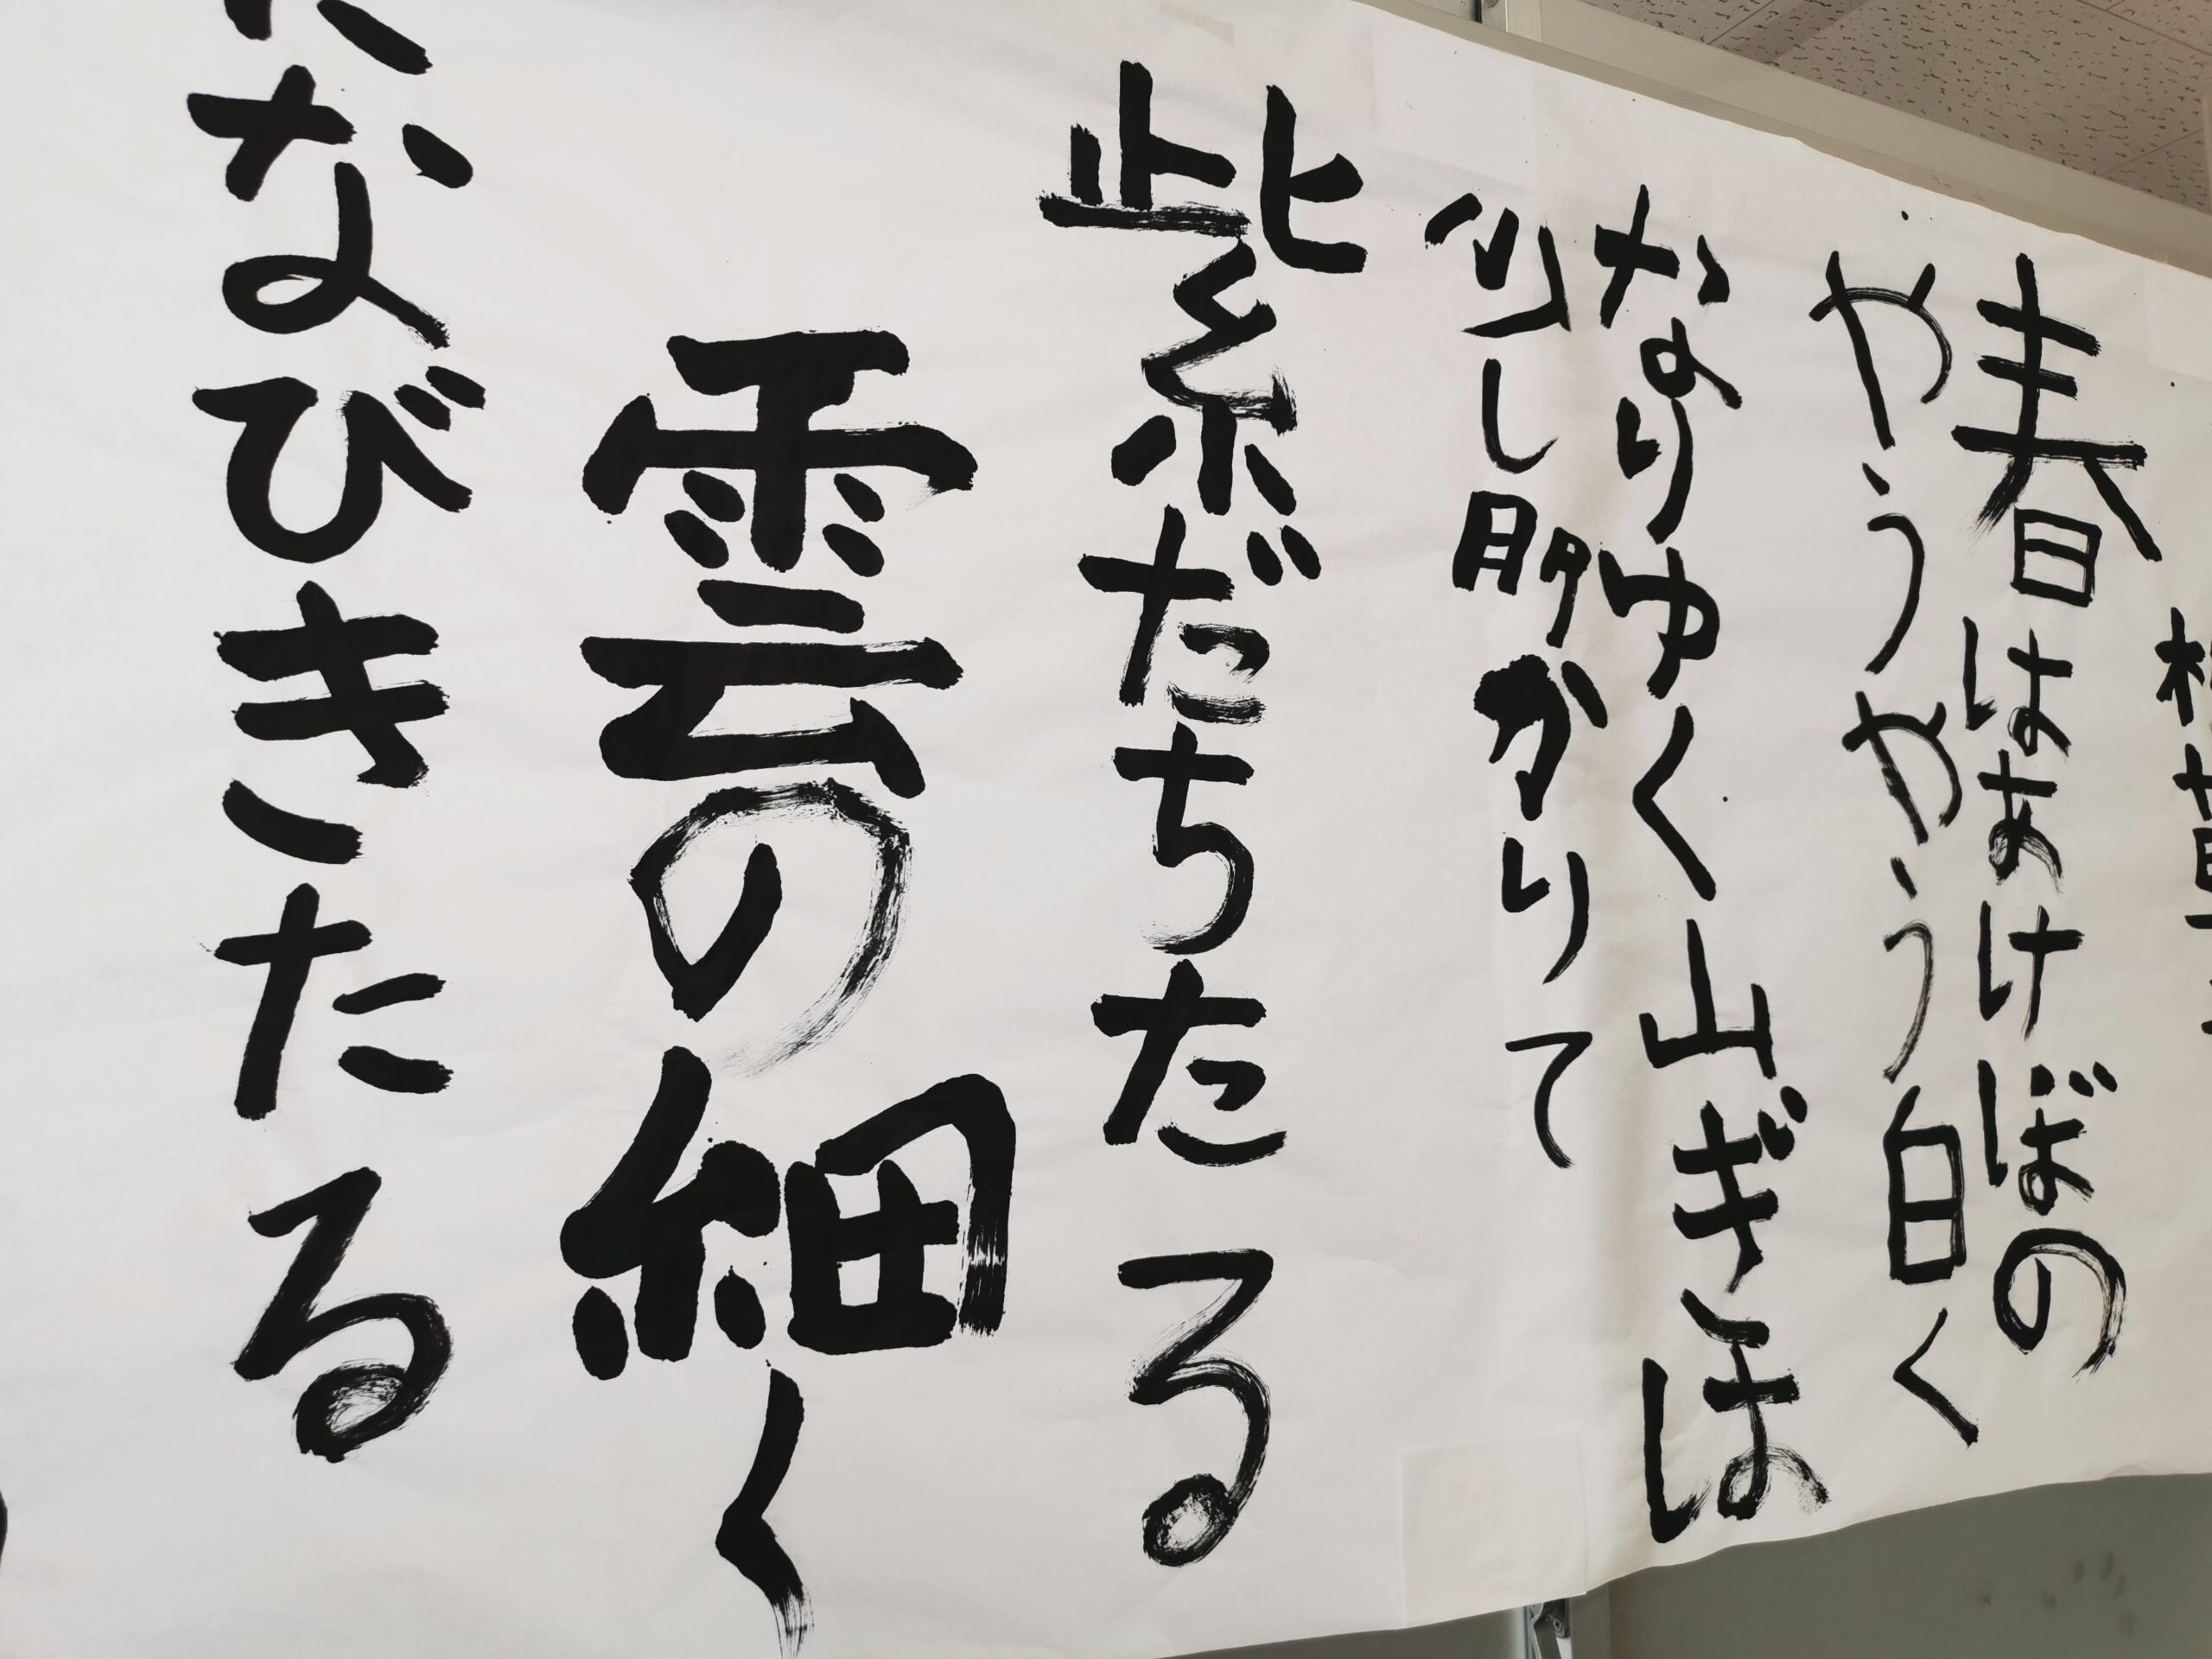 春はあけぼの
やうやう白く
なりゆく山ぎは
少し明かりて
紫だちたる
雲の細く
なびきたる